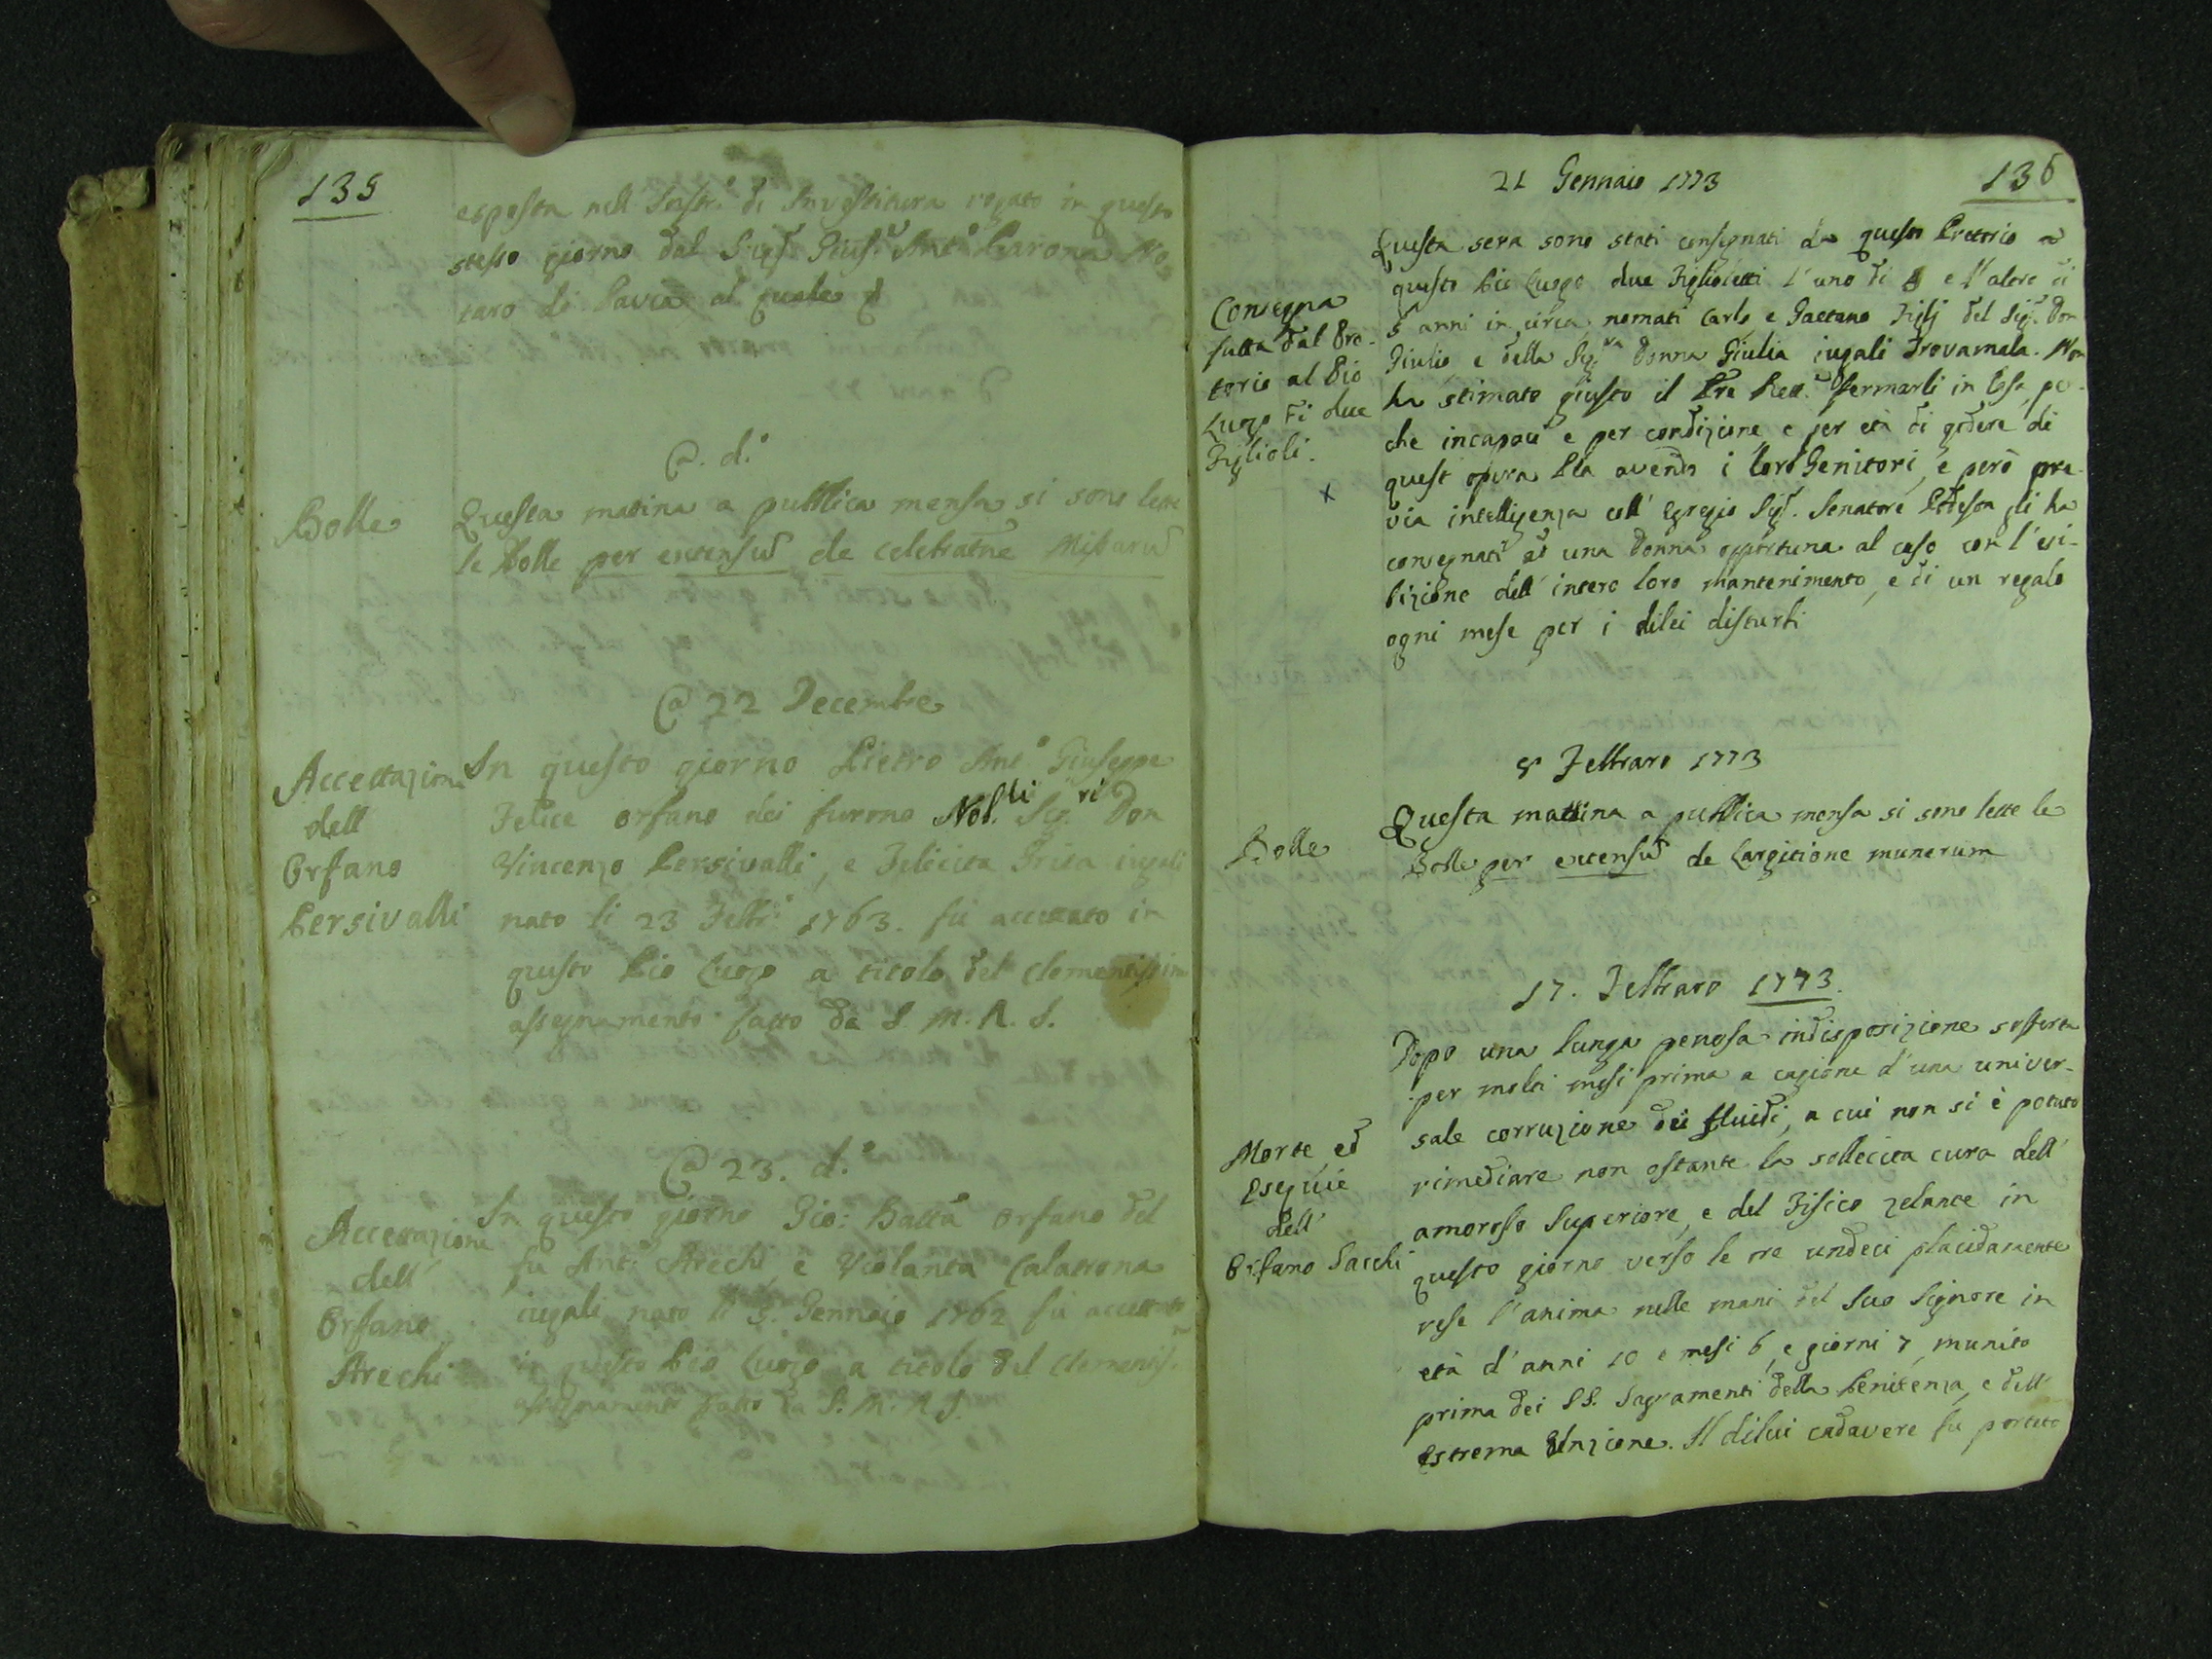 135
esposta nell' Instr.º di Investitura rogato in questo
stesso giorno dal Sigr. Gius.e Ant.º Carona No-
taro di Pavia al quale
@. d.º
Bolle
Questa matina a pubblica mensa si sono lette
le Bolle per extensum de celebratne Missarum
@ 22 Decembre
Accettazione
dell
Orfano
Persivalli
In questo giorno Pietro Ant.º Giuseppe
Felice orfano dei furono Nob.li Sig.ri Don
Vincenzo Persivalli, e Felicita iugali
nato li 23 Febbr.º 1763. fù accettato in
questo Pio Luogo a titolo del clementissimo
assegnamento fatto da S. M. R. I.
@ 23. d.º
Accettazione
dell'
Orfano
Arechi
In questo giorno Gio: Batta orfano del
fu Ant.º Arechi e Violanta Calatrona
iugali nato li 3. Gennaio 1762 fù accettato
in questo Pio Luogo a titolo del clementiss.mo
assegnamento fatto da S. M. R. I.
136
21 Gennaio 1773
Consegna
fatta dal Pre-
torio al Pio
Luogo di due
Figlioli.
x
Questa sera sono stati consegnati da questo Pretorio a
questo Pio Luogo due Figlioletti l'uno di 8 e l'altro di
5 anni in circa nomati Carlo e Gaetano Figlj del Sigr. Don
Giulio e della Sig.ra Donna Giulia iugali Trovamala. Non
ha stimato giusto il Pre Rett.e fermarli in Casa, per-
che incapaci e per condizione e per età di godere di
quest' opera Pia avendo i loro Genitori, e però pre-
via intelligenza coll' Egregio Sigr. Senatore Podestà gli ha
consegnati ad una Donna opportuna al caso con l'esi-
bizione dell' intero loro mantenimento, e di un regalo
ogni mese per i dilei disturbi
5 Febbraro 1773
Bolle
Questa mattina a pubblica mensa si sono lette le
Bolle per extensum de Largitione munerum
17. Febbraro 1773.
Morte, ed
Esequie
dell'
Orfano Sacchi
Dopo una lunga penosa indisposizione sofferta
per molti mesi prima a cagione d'una univer-
sale corruzione dei fluidi, a cui non si è potuto
rimediare non ostante la sollecita cura dell'
amoroso Superiore, e del Fisico zelante in
questo giorno verso le ore undeci placidamente
rese l'anima nelle mani del suo Signore in
età d'anni 10 e mesi 6, e giorni 7, munito
prima dei SS. Sagramenti della Penitenza, e dell'
Estrema Unzione. Il dilui cadavere fu portato